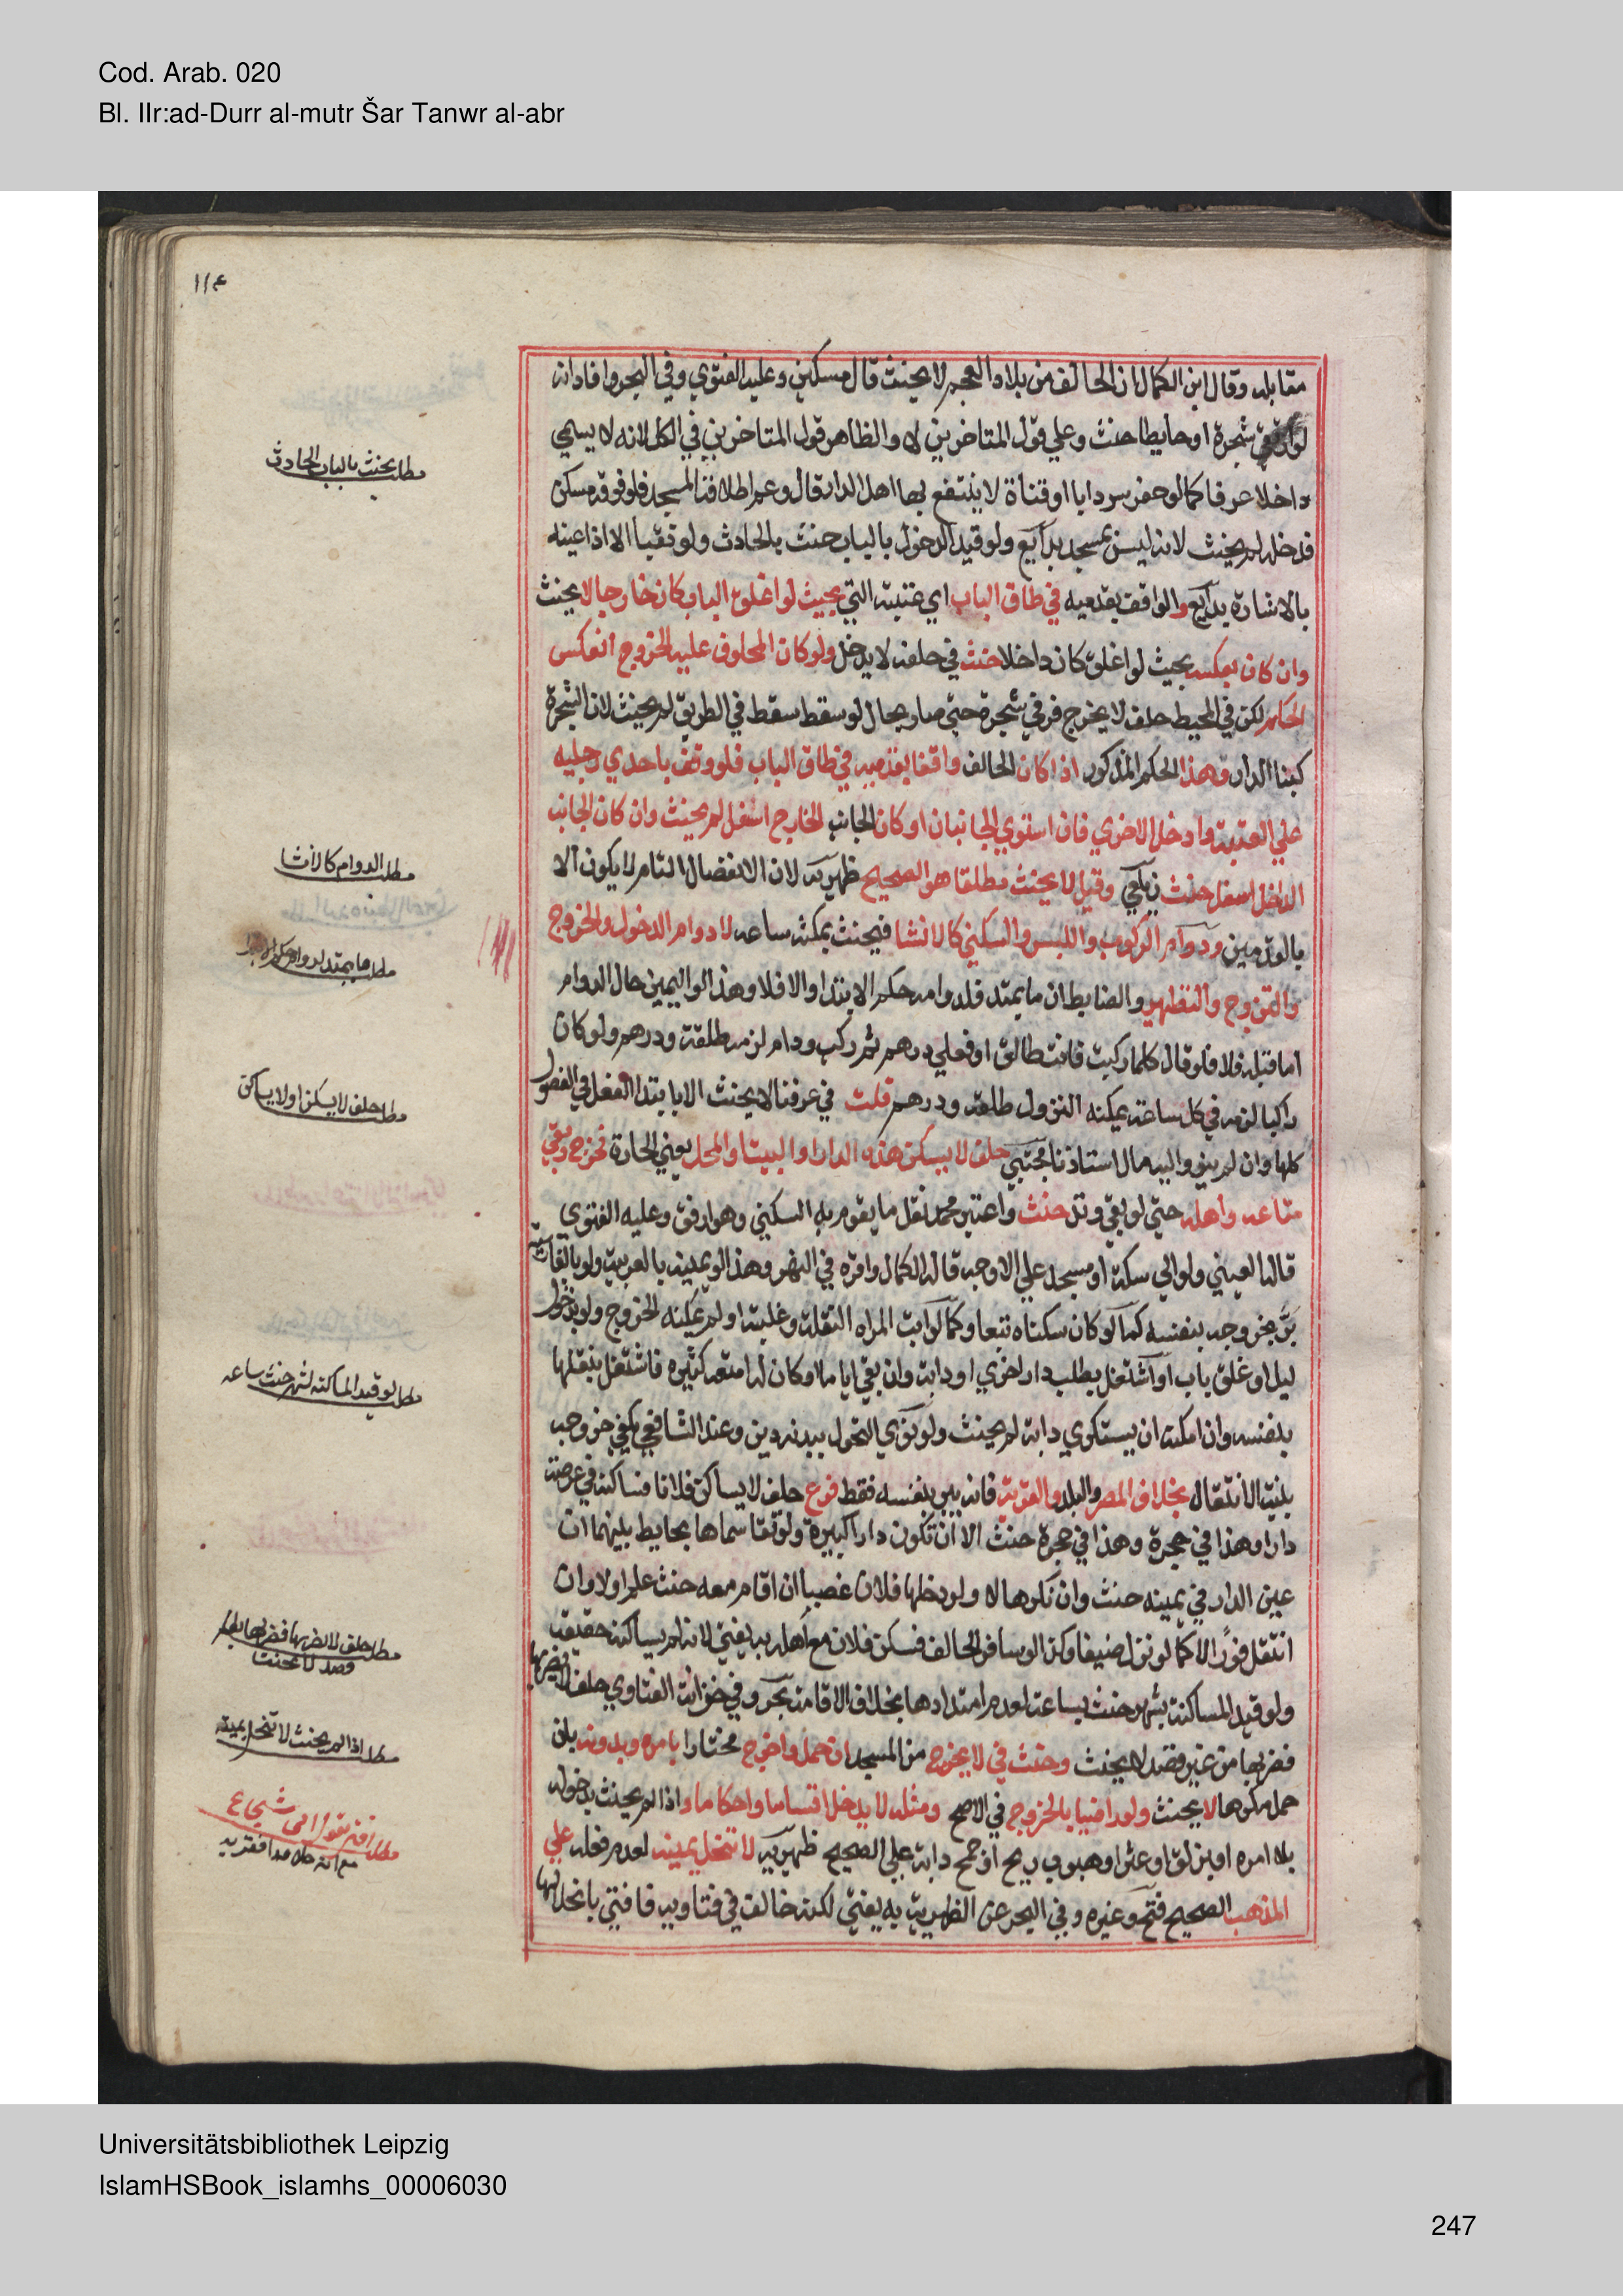 Cod. Arab. 020
Bl. IIr:ad-Durr al-mutr Šar Tanwr al-abr
١١٤
مقابله وقال ابن الكمال ان الحالف من بلاد العجم لا يحنث قال مسكين وعليه الفتوي وفي البحر وافاد انه
لو ارتقي شجرة او حايطا حنث وعلي قول المتاخرين لا والظاهر قول المتاخرين في الكل لانه لا يسمي
داخلا عرفا كما لو حفر سردابا او قناة لا ينتفع بها اهل الدار قال وعم اطلاقه المسجد فلو فوقه مسكن
فدخله لم يحنث لانه ليس بمسجد بدايع ولو قيد الدخول بالباب حنث بالحادث ولو نقبا الا اذا عينه
بالاشارة بدايع والواقف بقدميه في طاق الباب اي عتبته التي بحيث لو اغلق الباب كان خارجا لا يحنث
وان كان بعكسه بحيث لو اغلق كان داخلا حنث في حلفه لا يدخل ولو كان المحلوف عليه الخروج انعكس
الحكم لكن في المحيط حلف لا يخرج فرقي شجرة حتي صار بحال لو سقط سقط في الطريق لم يحنث لان الشجرة
كبنا الدار وهذا الحكم المذكور اذا كان الحالف واقفا بقدميه في طاق الباب فلو وقف باحدي رجليه
علي العتبة وادخل الاخري فان استوي الجانبان او كان الجانب الخارج اسفل لم يحنث وان كان الجانب
الداخل اسفل حنث زيلعي وقيل لا يحنث مطلقا هو الصحيح ظهيريه لان الانفصال التام لا يكون الا
بالقدمين ودوام الركوب واللبس والسكني كالانشا فيحنث بمكثه ساعه لا دوام الدخول والخروج
والتزوج والتطهير والضابط ان ما يمتد فلدوامه حكم الابتدا والا فلا وهذا لو اليمين حال الدوام
اما قبله فلا فلو قال كلما ركبت فانت طالق او فعلي درهم ثم ركب ودام لزمه طلقة ودرهم ولو كان
راكبا لزمه في كل ساعة يمكنه النزول طلقه ودرهم قلت في عرفنا لا يحنث الا بابتدا الفعل في الفصول
كلها وان لم ينو واليه مال استاذنا مجتبي حلف لا يسكن هذه الدار او البيت او المحل يعني الحارة فخرج وبقي
متاعه واهله حتي لو بقي وتد حنث واعتبر محمد نقل ما يقوم به السكني وهو ارفق وعليه الفتوي
قاله العيني ولو الي سكة او مسجد علي الاوجه قاله الكمال واقره في النهر وهذا لو يمينه بالعربية ولو بالفارسية
بر بخروجه بنفسه كما لو كان سكناه تبعا وكما لو ابت المراه النقلة وغلبته او لم يمكنه الخروج ولو بدخول
ليل او غلق باب او اشتغل بطلب دار اخري او دابة وان بقي اياما او كان له امتعه كثيره فاشتغل بنقلها
بنفسه وان امكنه ان يستكري دابة لم يحنث ولو نوي التحول ببدنه دين وعند الشافعي يكفي خروجه
بنية الانتقال بخلاف المصر والبلد والقرية فانه يبر بنفسه فقط فرع حلف لا يساكن فلانا فساكنه في عرصة
دار او هذا في حجرة وهذا في حجرة حنث الا ان تكون دارا كبيرة ولو تقاسماها بحايط بينهما ان
عين الدار في يمينه حنث وان نكرها لا ولو دخلها فلان غصبا ان اقام معه حنث علم اولا وان
انتقل فورا لا كما لو نزل ضيفا وكذا لو سافر الحالف فسكن فلان مع اهله به يفتي لانه لم يساكنه حقيقة
ولو قيد المساكنة بشهر حنث بساعة لعدم امتدادها بخلاف الاقامة بحر وفي خزانة الفتاوي حلف لا يضربها
فضربها من غير قصد لا يحنث وحنث في لا يخرج من المسجد ان حمل واخرج مختارا بامره وبدونه بان
حمل مكرها لا يحنث ولو راضيا بالخروج في الاصح ومثله لا يدخل اقساما واحكاما واذا لم يحنث بدخوله
بلا امره او بزلق او عثر او هبوب ريح او جمح دابة علي الصحيح ظهيريه لا تنحل يمينه لعدم فعله علي
المذهب الصحيح فتح وغيره وفي البحر عن الظهيرية به يفتي لكنه خالف في فتاويه فافتي بانحلالها
مطلب يحنث بالباب الحادث
مطلب الدوام كالانشا
مطلب ما يمتد لدوامه حكم الابتدا
مطلب حلف لا يسكن او لا يساكن
مطلب لو قيد المساكنة بشهر حنث بساعه
مطلب حلف لا يضربها فضربها بغير
قصد لا يحنث
مطلب اذا لم يحنث لا تنحل يمينه
Universitätsbibliothek Leipzig
IslamHSBook_islamhs_00006030
247